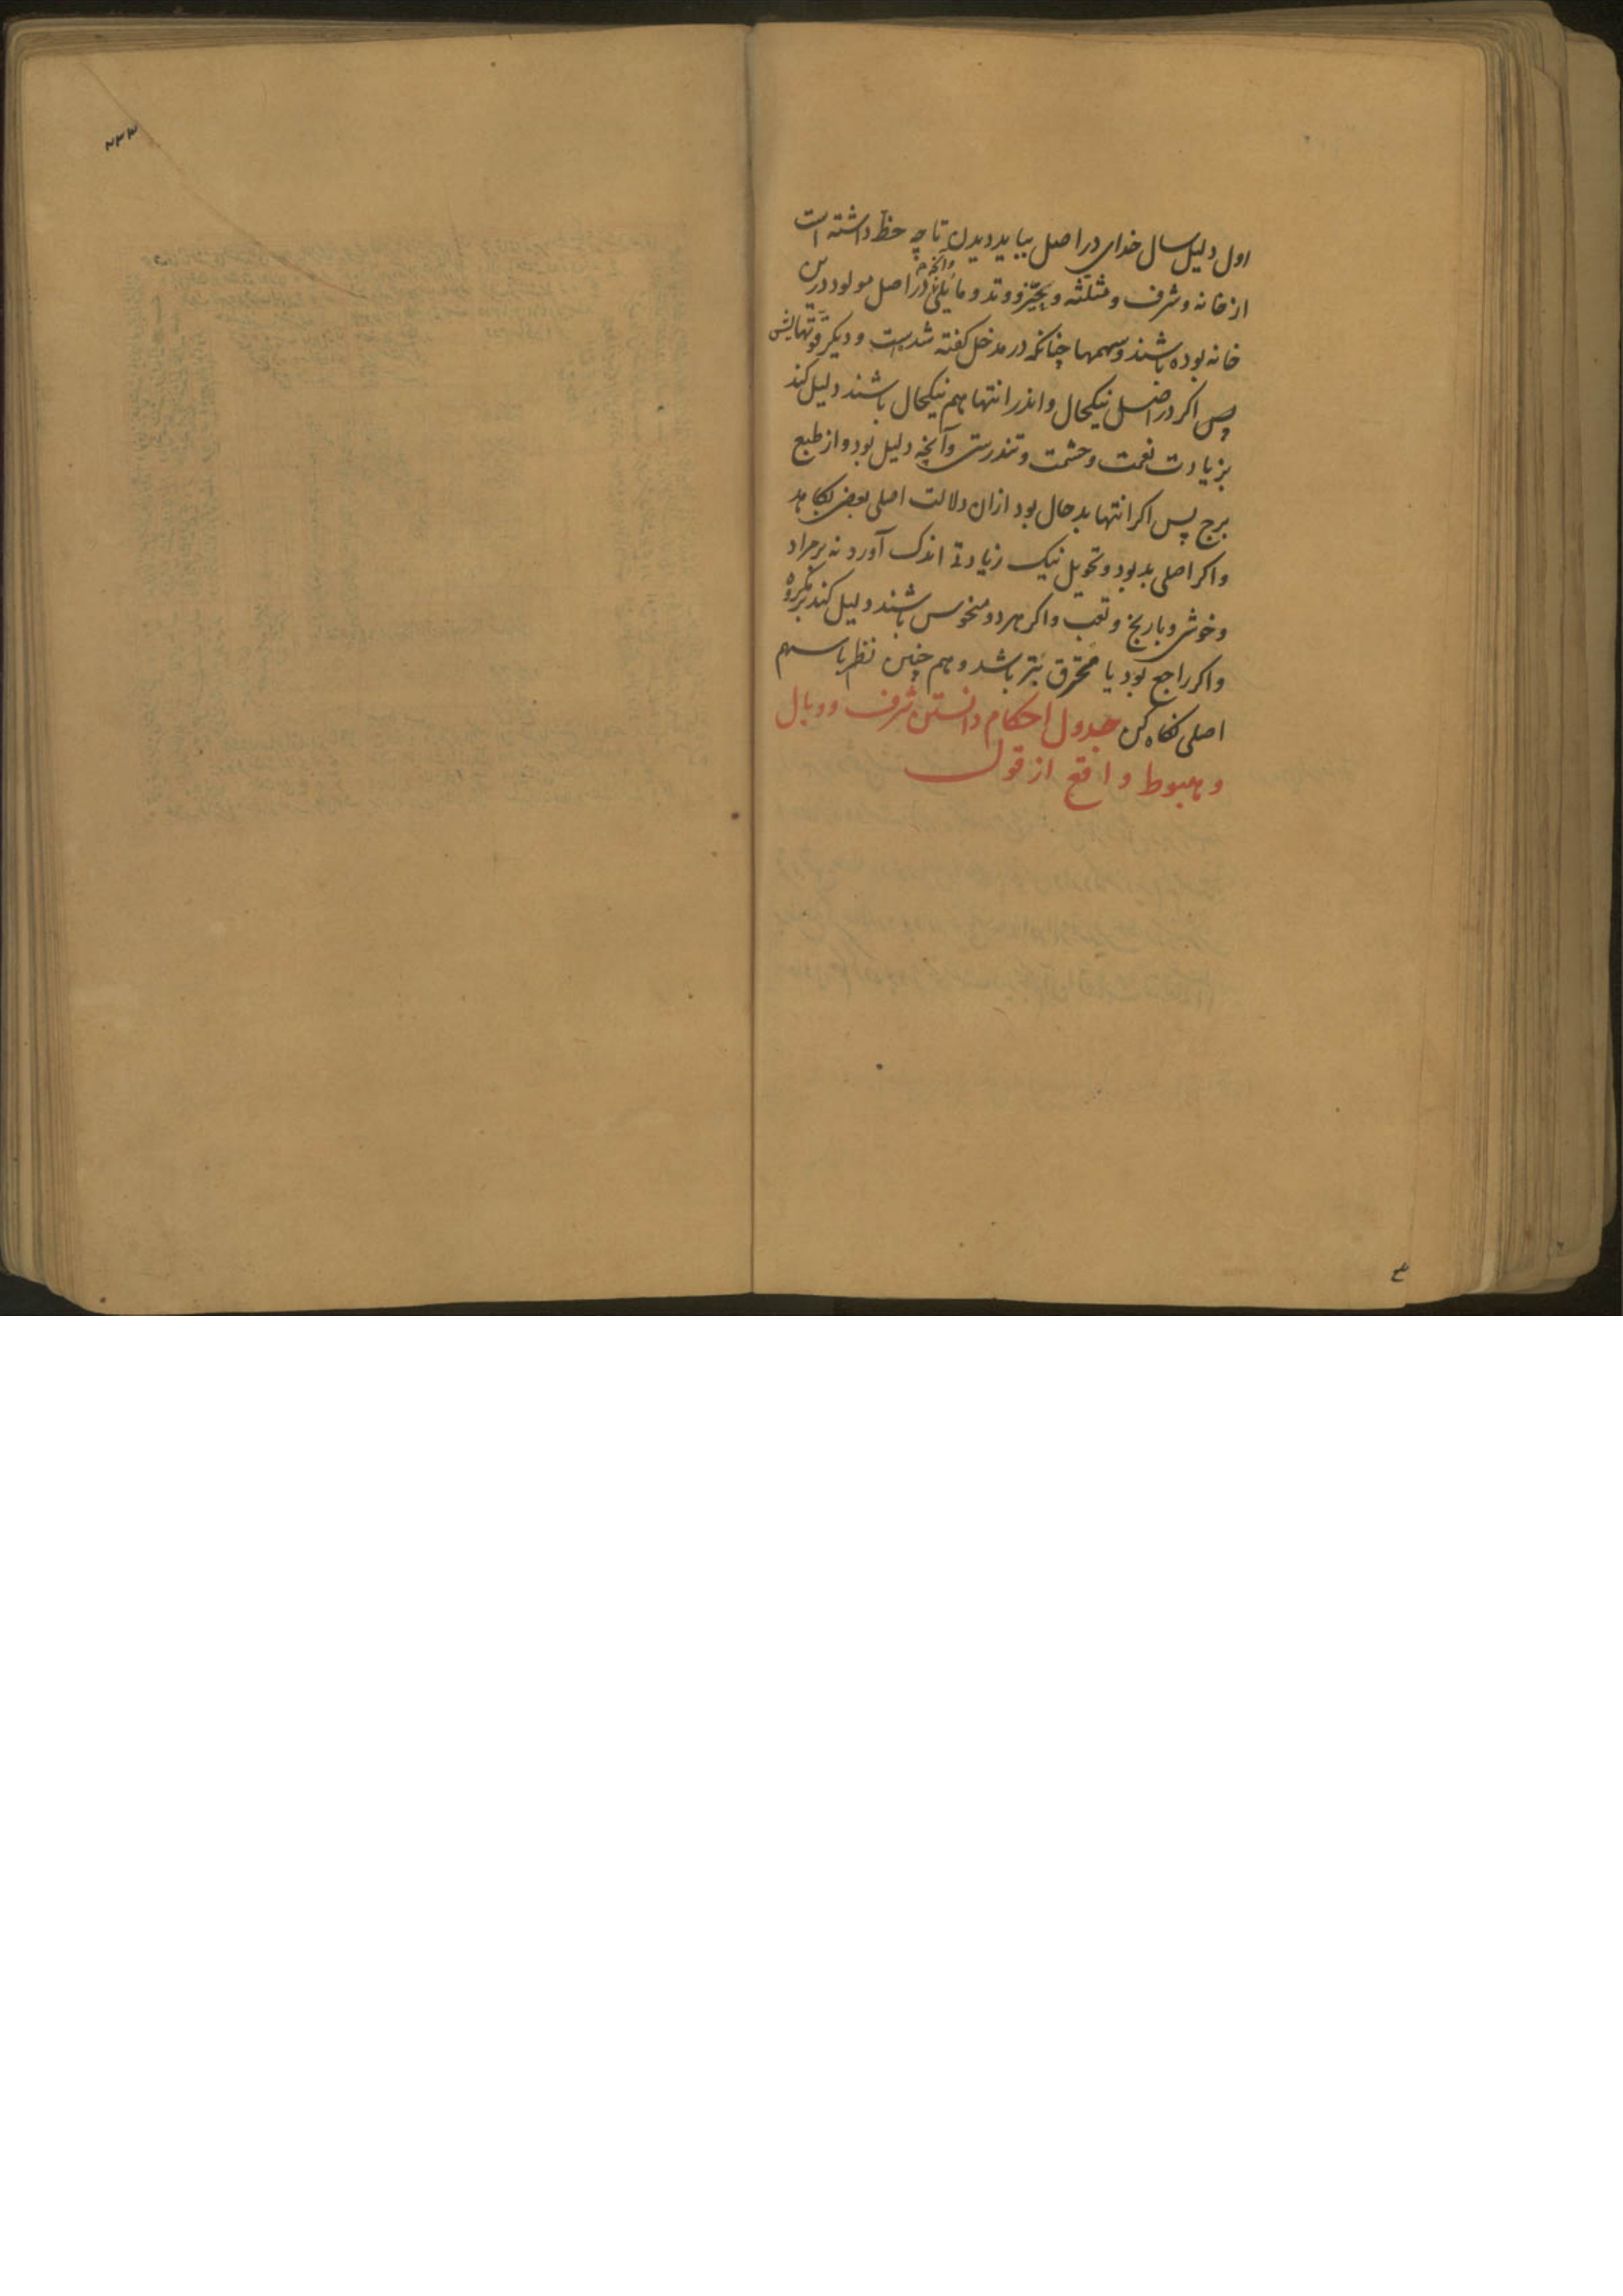 اول دلیل سال خدای در اصل بباید دیدن تا چه حظ داشته است
از خانه و شرف و مثلثه و حیز و وتد و مائلی وآنچه در اصل مولود درین
خانه بوده باشند و سهمها چنانکه در مدخل کفته شدست و دیکر قوتهایش
پس اکر در اصل نیکحال و اندر انتها هم نیکحال باشند دلیل کند
بزیادت نعمت و حشمت و تندرستی وآنچه دلیل بود و از طبع
برج پس اکر انتها بدحال بود ازان دلالت اصلی بعضی بکاهد
واکر اصلی بد بود و تحویل نیک زیادتی اندک آورد نه بر مراد
و خوشی و با رنج و تعب واکر هر دو منحوس باشند دلیل کند بر مکروه
واکر راجع بود یا محترق بتر باشد و هم چنین نظر با سهم
اصلی نکاه کن جدول احکام دانستن شرف و وبال
و هبوط واقع از قول
۲۳۳